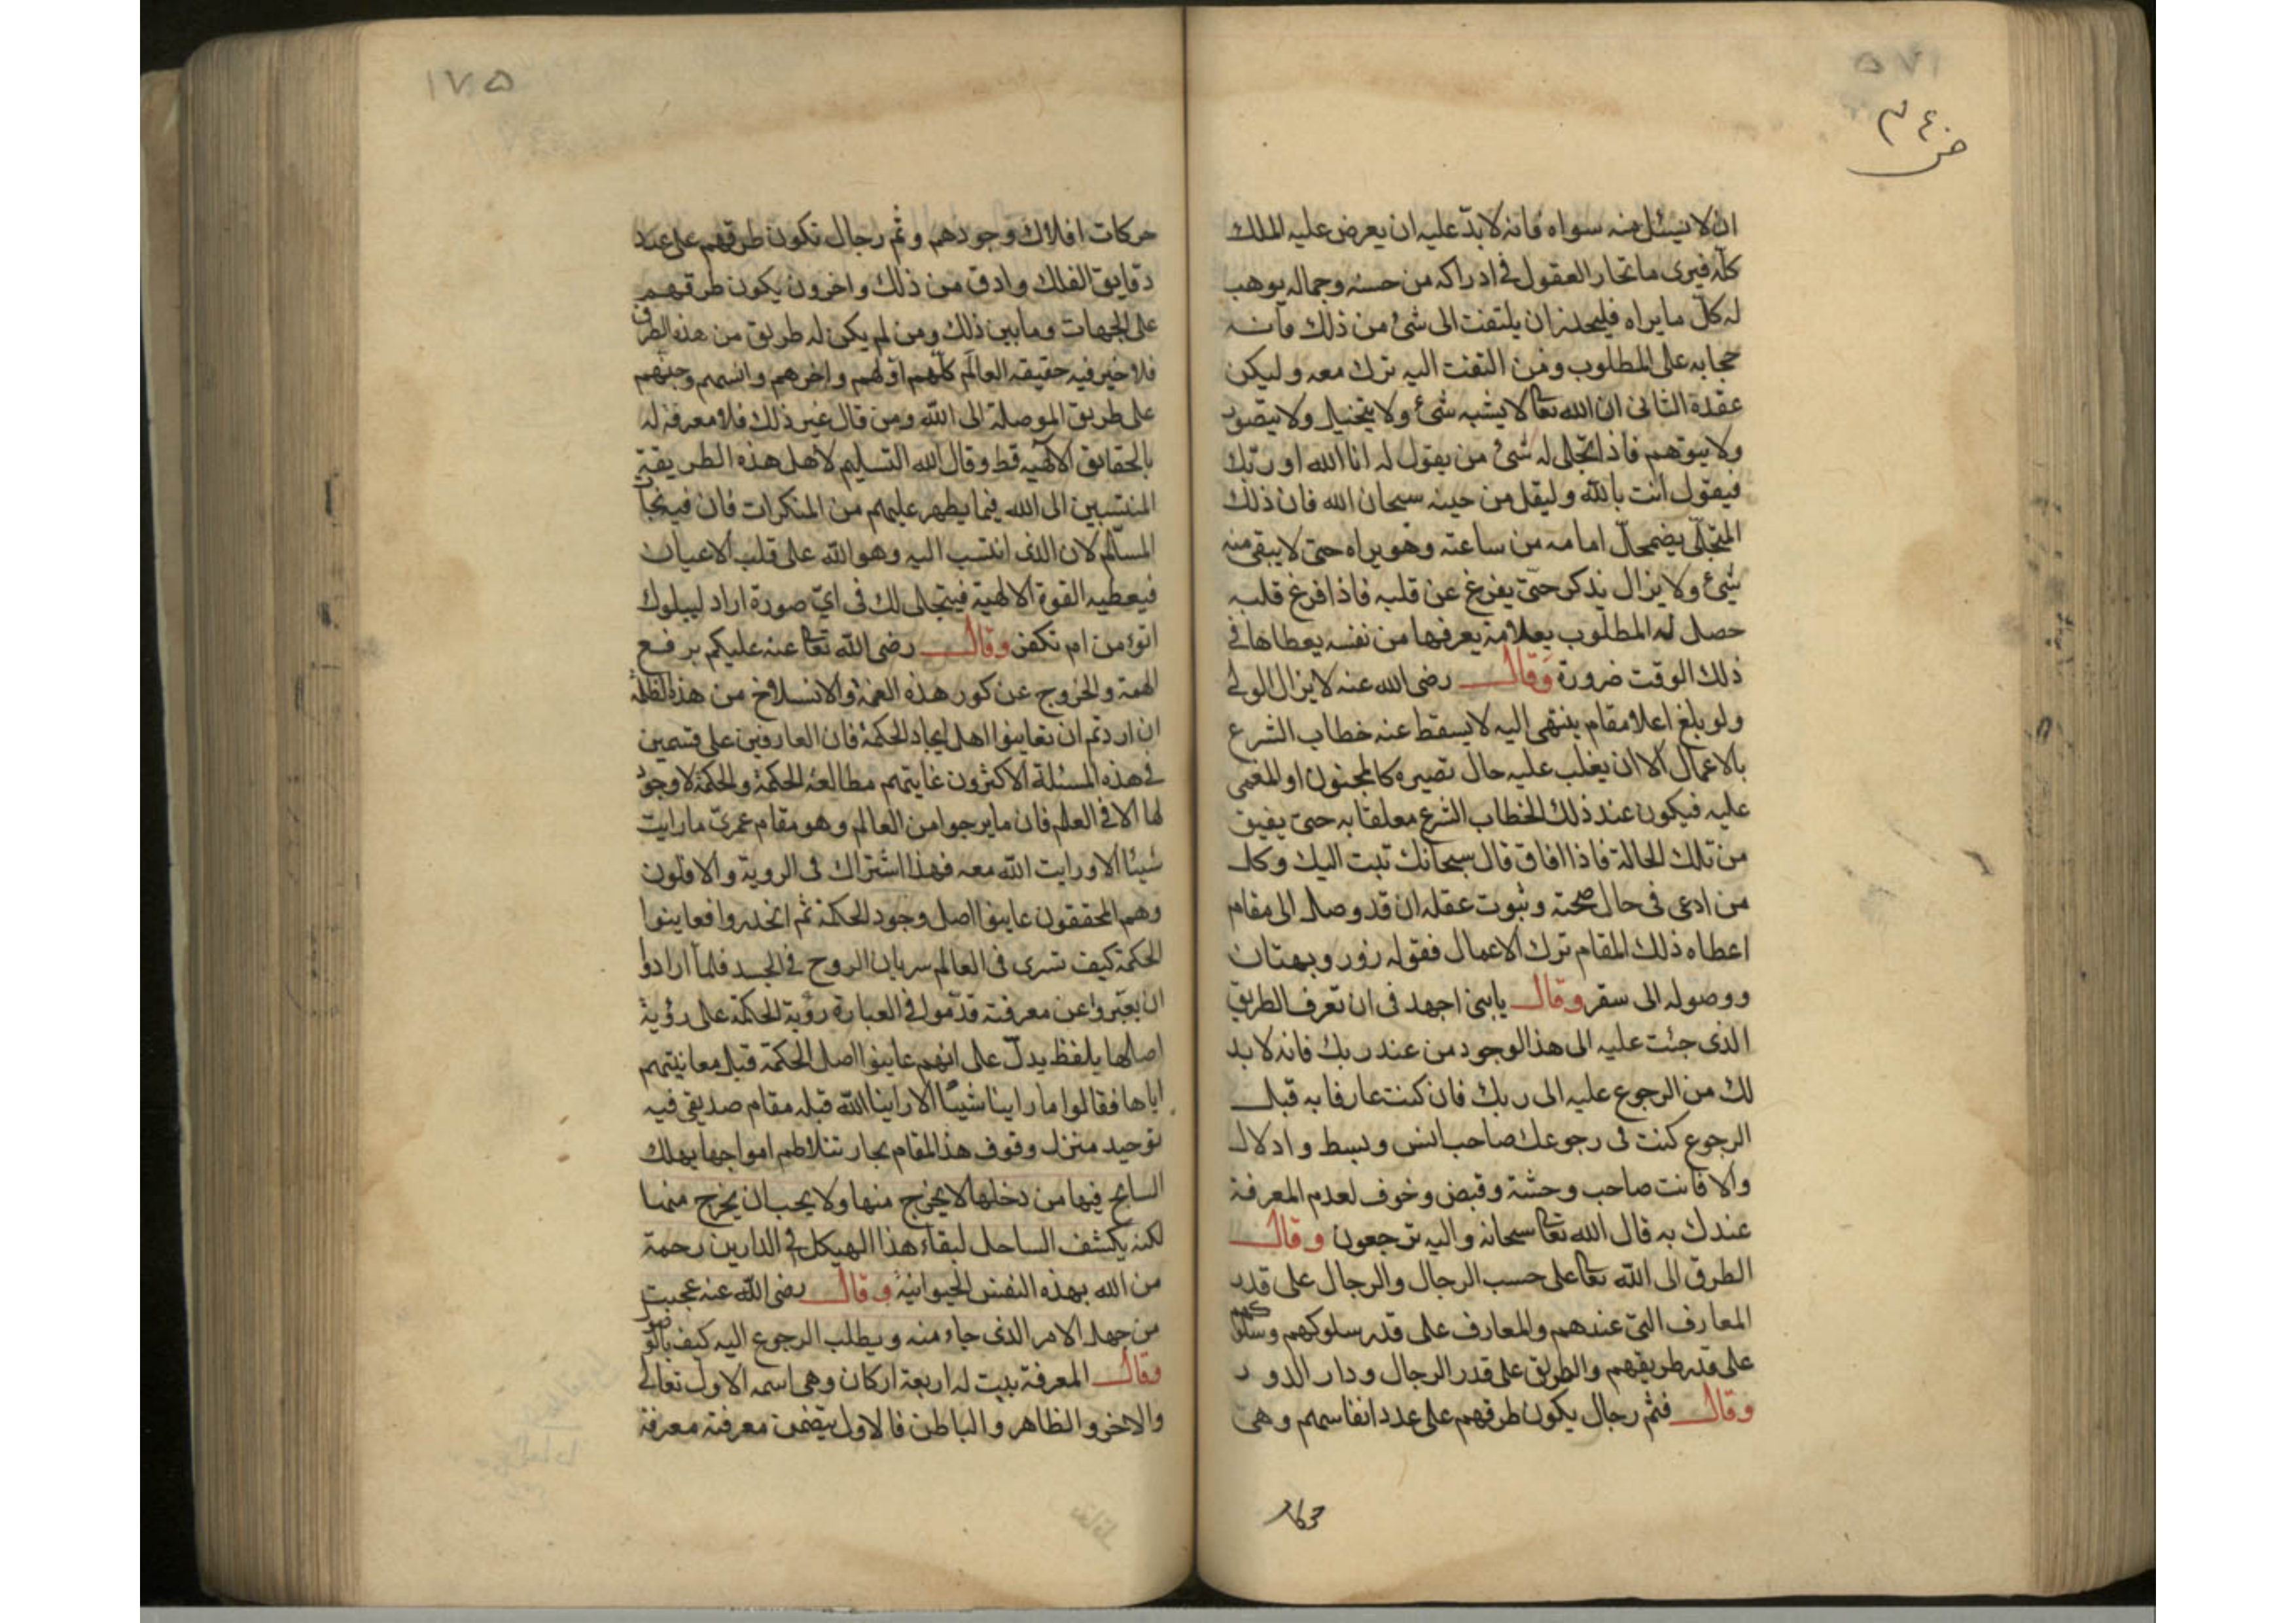 ض ٣٤
ان لا نيسئل منه سواه فانه لا بدّ عليه ان يعرض عليه الملك
كلّه فيرى ما تحار العقول في ادراكه من حسنه وجماله يوهب
له كلّ ما يراه فليحذر ان يلتفت الى شئ من ذلك فانه
حجابه على المطلوب ومن التفت اليه ترك معه وليكن
عقده الثانى ان الله تعا لا يشبه شئ ولا يتخيل ولا يتصور
ولا يتوهم فاذا تجلى له شئ من يقول له انا الله او ربّك
فيقول انت بالله وليقل من حينه سبحان الله فان ذلك
المتجلّى يضمحلّ امامه من ساعته وهو يراه حتى لا يبقى منه
شئ ولا يزال يذكر حتى يفرغ عن قلبه فاذا فرغ قلبه
حصل له المطلوب بعلامة يعرفها من نفسه يعطاها في
ذلك الوقت ضرورة وقال رضى الله عنه لا يزال الولى
ولو بلغ اعلا مقام ينتهى اليه لا يسقط عنه خطاب الشرع
بالاعمال الا ان يغلب عليه حال تصيره كالمجنون او المغمى
عليه فيكون عند ذلك الخطاب الشرع معلقا به حتى يفيق
من تلك الحالة فاذا افاق قال سبحانك تبت اليك وكل
من ادعى فى حال صحته وثبوت عقله ان قد وصل الى مقام
اعطاه ذلك المقام ترك الاعمال فقوله زور وبهتان
ووصوله الى سقر وقال يابنى اجهد فى ان تعرف الطريق
الذى جئت عليه الى هذا الوجود من عند ربك فانه لا بد
لك من الرجوع عليه الى ربك فان كنت عارفا به قبل
الرجوع كنت فى رجوعك صاحب انس وبسط وادلال
والا فانت صاحب وحشة وقبض وخوف لعدم المعرفة
عندك به قال الله تعا سبحانه واليه ترجعون وقال
الطرق الى الله تعا على حسب الرجال والرجال على قدر
المعارف التى عندهم والمعارف على قدر سلوكهم وسلوكهم
على قدر طريقهم والطريق على قدر الرجال ودار الدور
وقال فثم رجال يكون طرقهم على عدد انفاسهم وهى
١٧٥
حركات افلاك وجودهم وثم رجال تكون طرقهم على عدد
دقايق الفلك وادق من ذلك واخرون يكون طرقهم
على الجهات وما بين ذلك ومن لم يكن له طريق من هذه الطرق
فلا خير فيه حقيقه العالم كلّهم اوّلهم واخرهم وانسهم وجنّهم
على طريق الموصلة الى الله ومن قال غير ذلك فلا معرفة له
بالحقايق الالهيه قط وقال الله التسليم لاهل هذه الطريقة
المنتسبين الى الله فيما يظهر عليهم من المنكرات فان فيه نجاة
المسلّم لان الذى انتسب اليه وهو الله على قلب الاعيان
فيعطيه القوة الالهية فيتجلى لك فى اىّ صورة اراد ليبلوك
اتؤمن ام تكفر وقال رضى الله تعا عنه عليكم برفع
الهمة والخروج عن كور هذه الغمة والانسلاخ من هذه الظلمة
ان اردتم ان تعاينوا اهل ايجاد الحكمة فان العارفين على قسمين
فى هذه المسئلة الاكثرون غايتهم مطالعة الحكمة والحكمة لا وجود
لها الا فى العلم فان ما يرجوا من العالم وهو مقام عمرىّ ما رايت
شيئا الا ورايت الله معه فهذا اشتراك فى الروية والاقلون
وهم المحققون عاينوا اصل وجود الحكمة ثم انحدروا فعاينوا
الحكمة كيف تسرى فى العالم سريان الروح فى الجسد فلما ارادوا
ان يعبّروا عن معرفته قدّموا فى العبارة رؤية الحكمة على رؤية
اصلها بلفظ يدلّ على انهم عاينوا اصل الحكمة قبل معاينتهم
اياها فقالوا ما راينا شيئا الا راينا الله قبله مقام صديقى فيه
توحيد منزل وقوف هذا المقام بحار تتلاطم امواجها يهلك
السابح فيها من دخلها لا يخرج منها ولا يحب ان يخرج منها
لكنه يكشف الساحل لبقاء هذا الهيكل فى الدارين رحمة
من الله بهذه النفس الحيوانية وقال رضى الله عنه عجبت
من جهل الامر الذى جاء منه ويطلب الرجوع اليه كيف بالوصول
وقال المعرفة بيت له اربعة اركان وهى اسمه الاول تعالى
والاخر والظاهر والباطن فالاول يتضمن معرفته معرفة